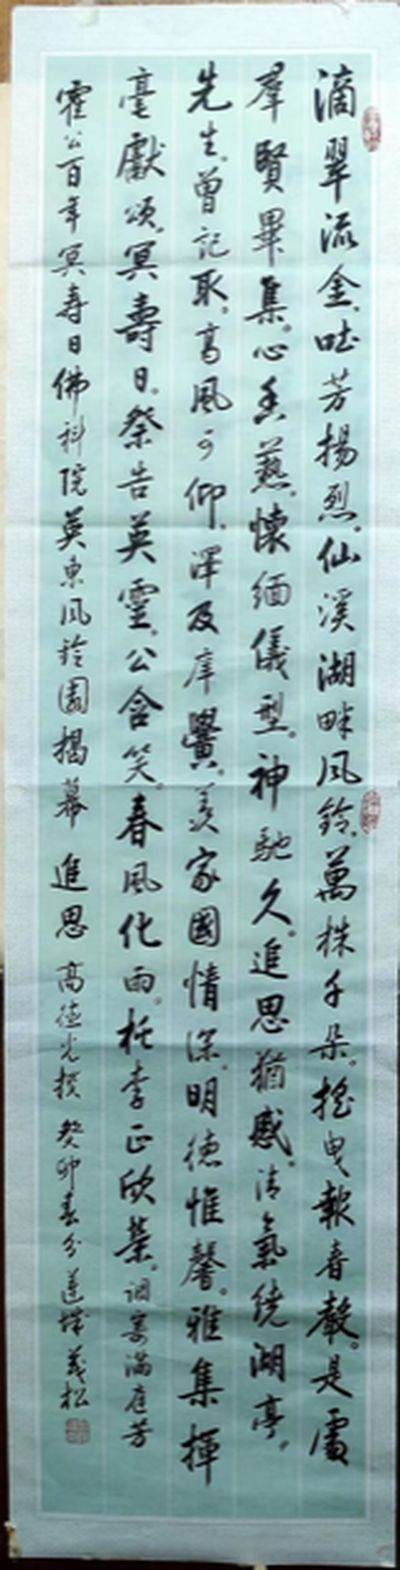 滴翠流金、吐芳揚烈。仙溪湖畔風鈴、萬株千朵。搖曳報春聲。是處
羣賢畢集。心香爇。懷緬儀型。神馳久。追思猶感。清氣繞湖亭。
先生。曾記取。高風可仰。澤及庠黌。羨家國情深。明德惟馨。雅集揮
毫獻頌。冥壽日。祭告英靈。公含笑。春風化雨。桃李正欣榮。調寄滿庭芳
霍公百年冥壽日佛科院英東風鈴園揭幕追思 高德光撰 癸卯春分 蓮城義松